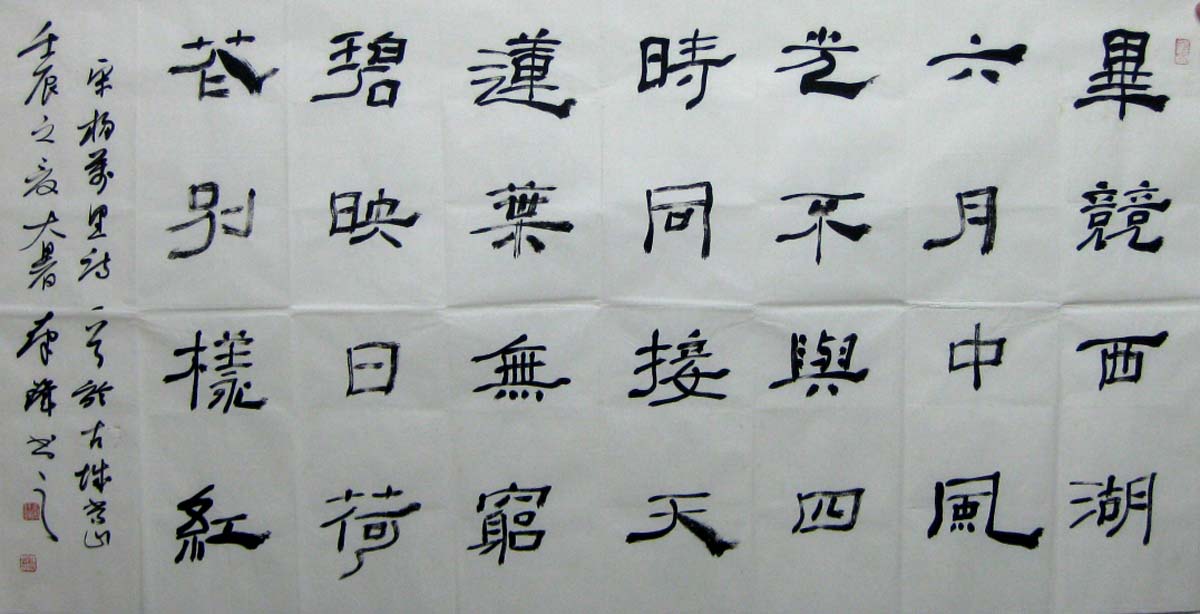 畢競西湖
六月中風
光不與四
時同接天
蓮葉無窮
碧映日荷
花別樣紅
宋楊萬里詩一首於古城常山
壬辰之夏大暑 書之